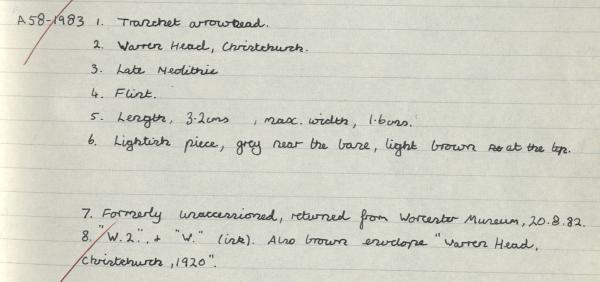 A58-1983 1. Tranchet arrowhead.
2. Warren Head, Christchurch.
3. Late Neolithic
4. Flint.
5. Length, 3.2cms , max. width, 1.6cms.
6. Lightish piece, grey near the base, light brown at the top.
7. Formerly unaccessioned, returned from Worcester Museum, 20.8.82.
8. "W.2". + "W." (ink). Also brown envelope "Warren Head,
Christchurch, 1920".